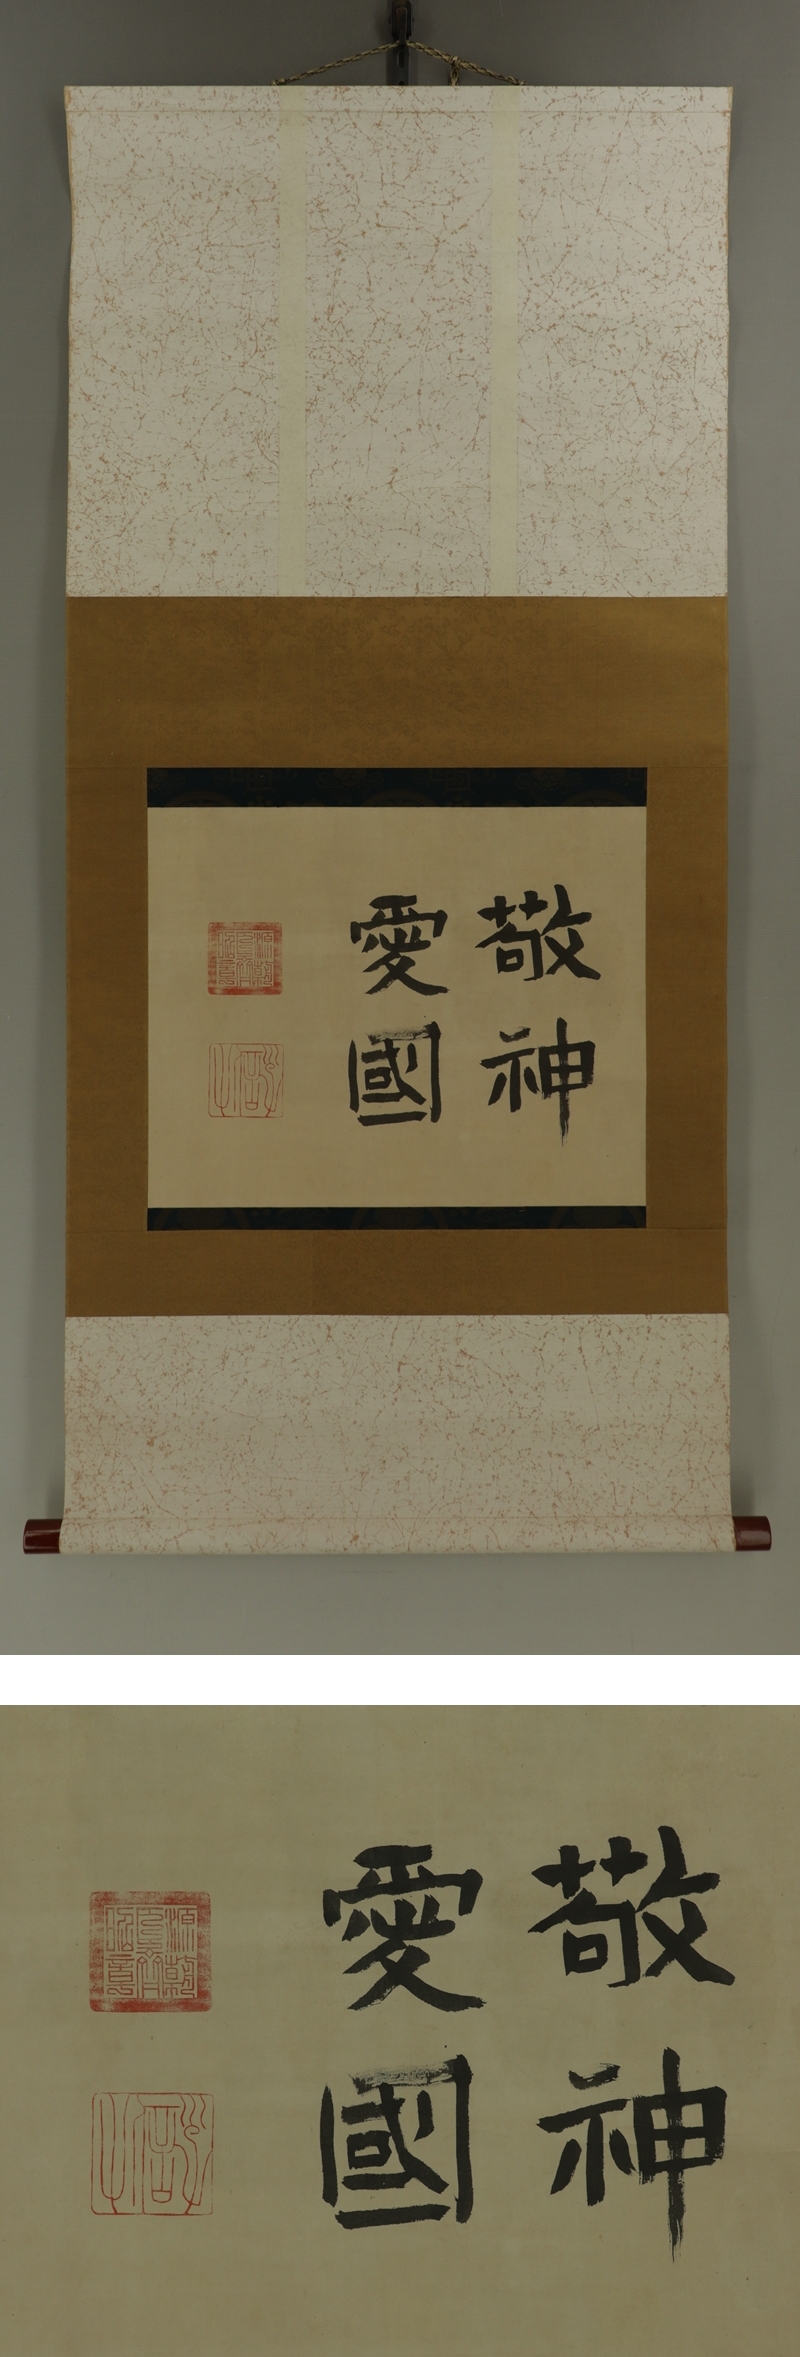 敬神
愛國
敬神
愛國